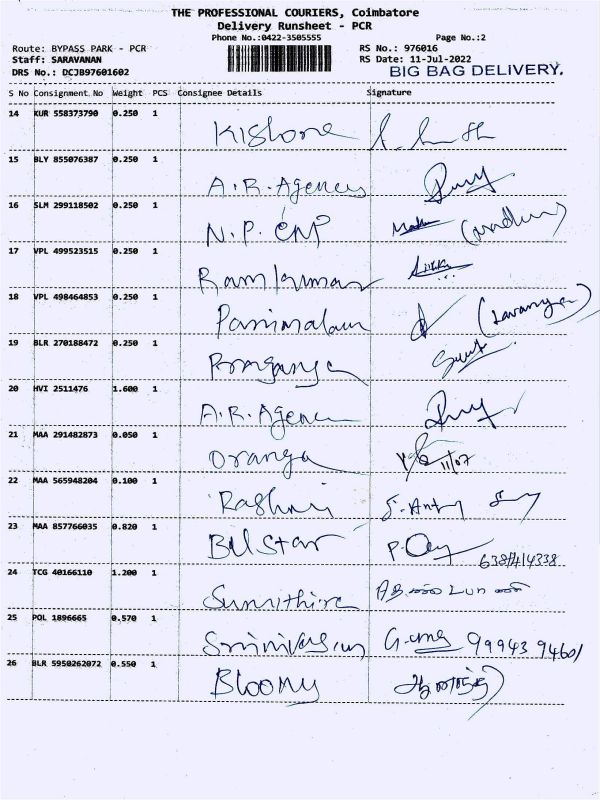 THE PROFESSIONAL COURIERS, Coimbatore
Delivery Runsheet - PCR
Phone No.:0422-3505555 Page No.:2
Route: BYPASS PARK - PCR RS No.: 976016
Staff: SARAVANAN RS Date: 11-Jul-2022
DRS No.: DCJB97601602 BIG BAG DELIVERY.
S No Consignment No Weight PCS Consignee Details Signature
14 KUR 558373790 0.250 1 Kishore
15 BLY 855076387 0.250 1 A.R. Agency
16 SLM 299118502 0.250 1 N.P. (Madhu)
17 VPL 499523515 0.250 1 Ramkumar
18 VPL 498464853 0.250 1 Panimalar (Saranya)
19 BLR 270188472 0.250 1
20 HVI 2511476 1.600 1 A.R. Agency
21 MAA 291482873 0.050 1 Orange 11/07
22 MAA 565948204 0.100 1 Rashmi S. Antony
23 MAA 857766035 0.820 1 Bell Star
24 TCG 40166110 1.200 1 Sumithira
25 POL 1896665 0.570 1 Srinivasan 99943 94601
26 BLR 5950262072 0.550 1 Bloomy